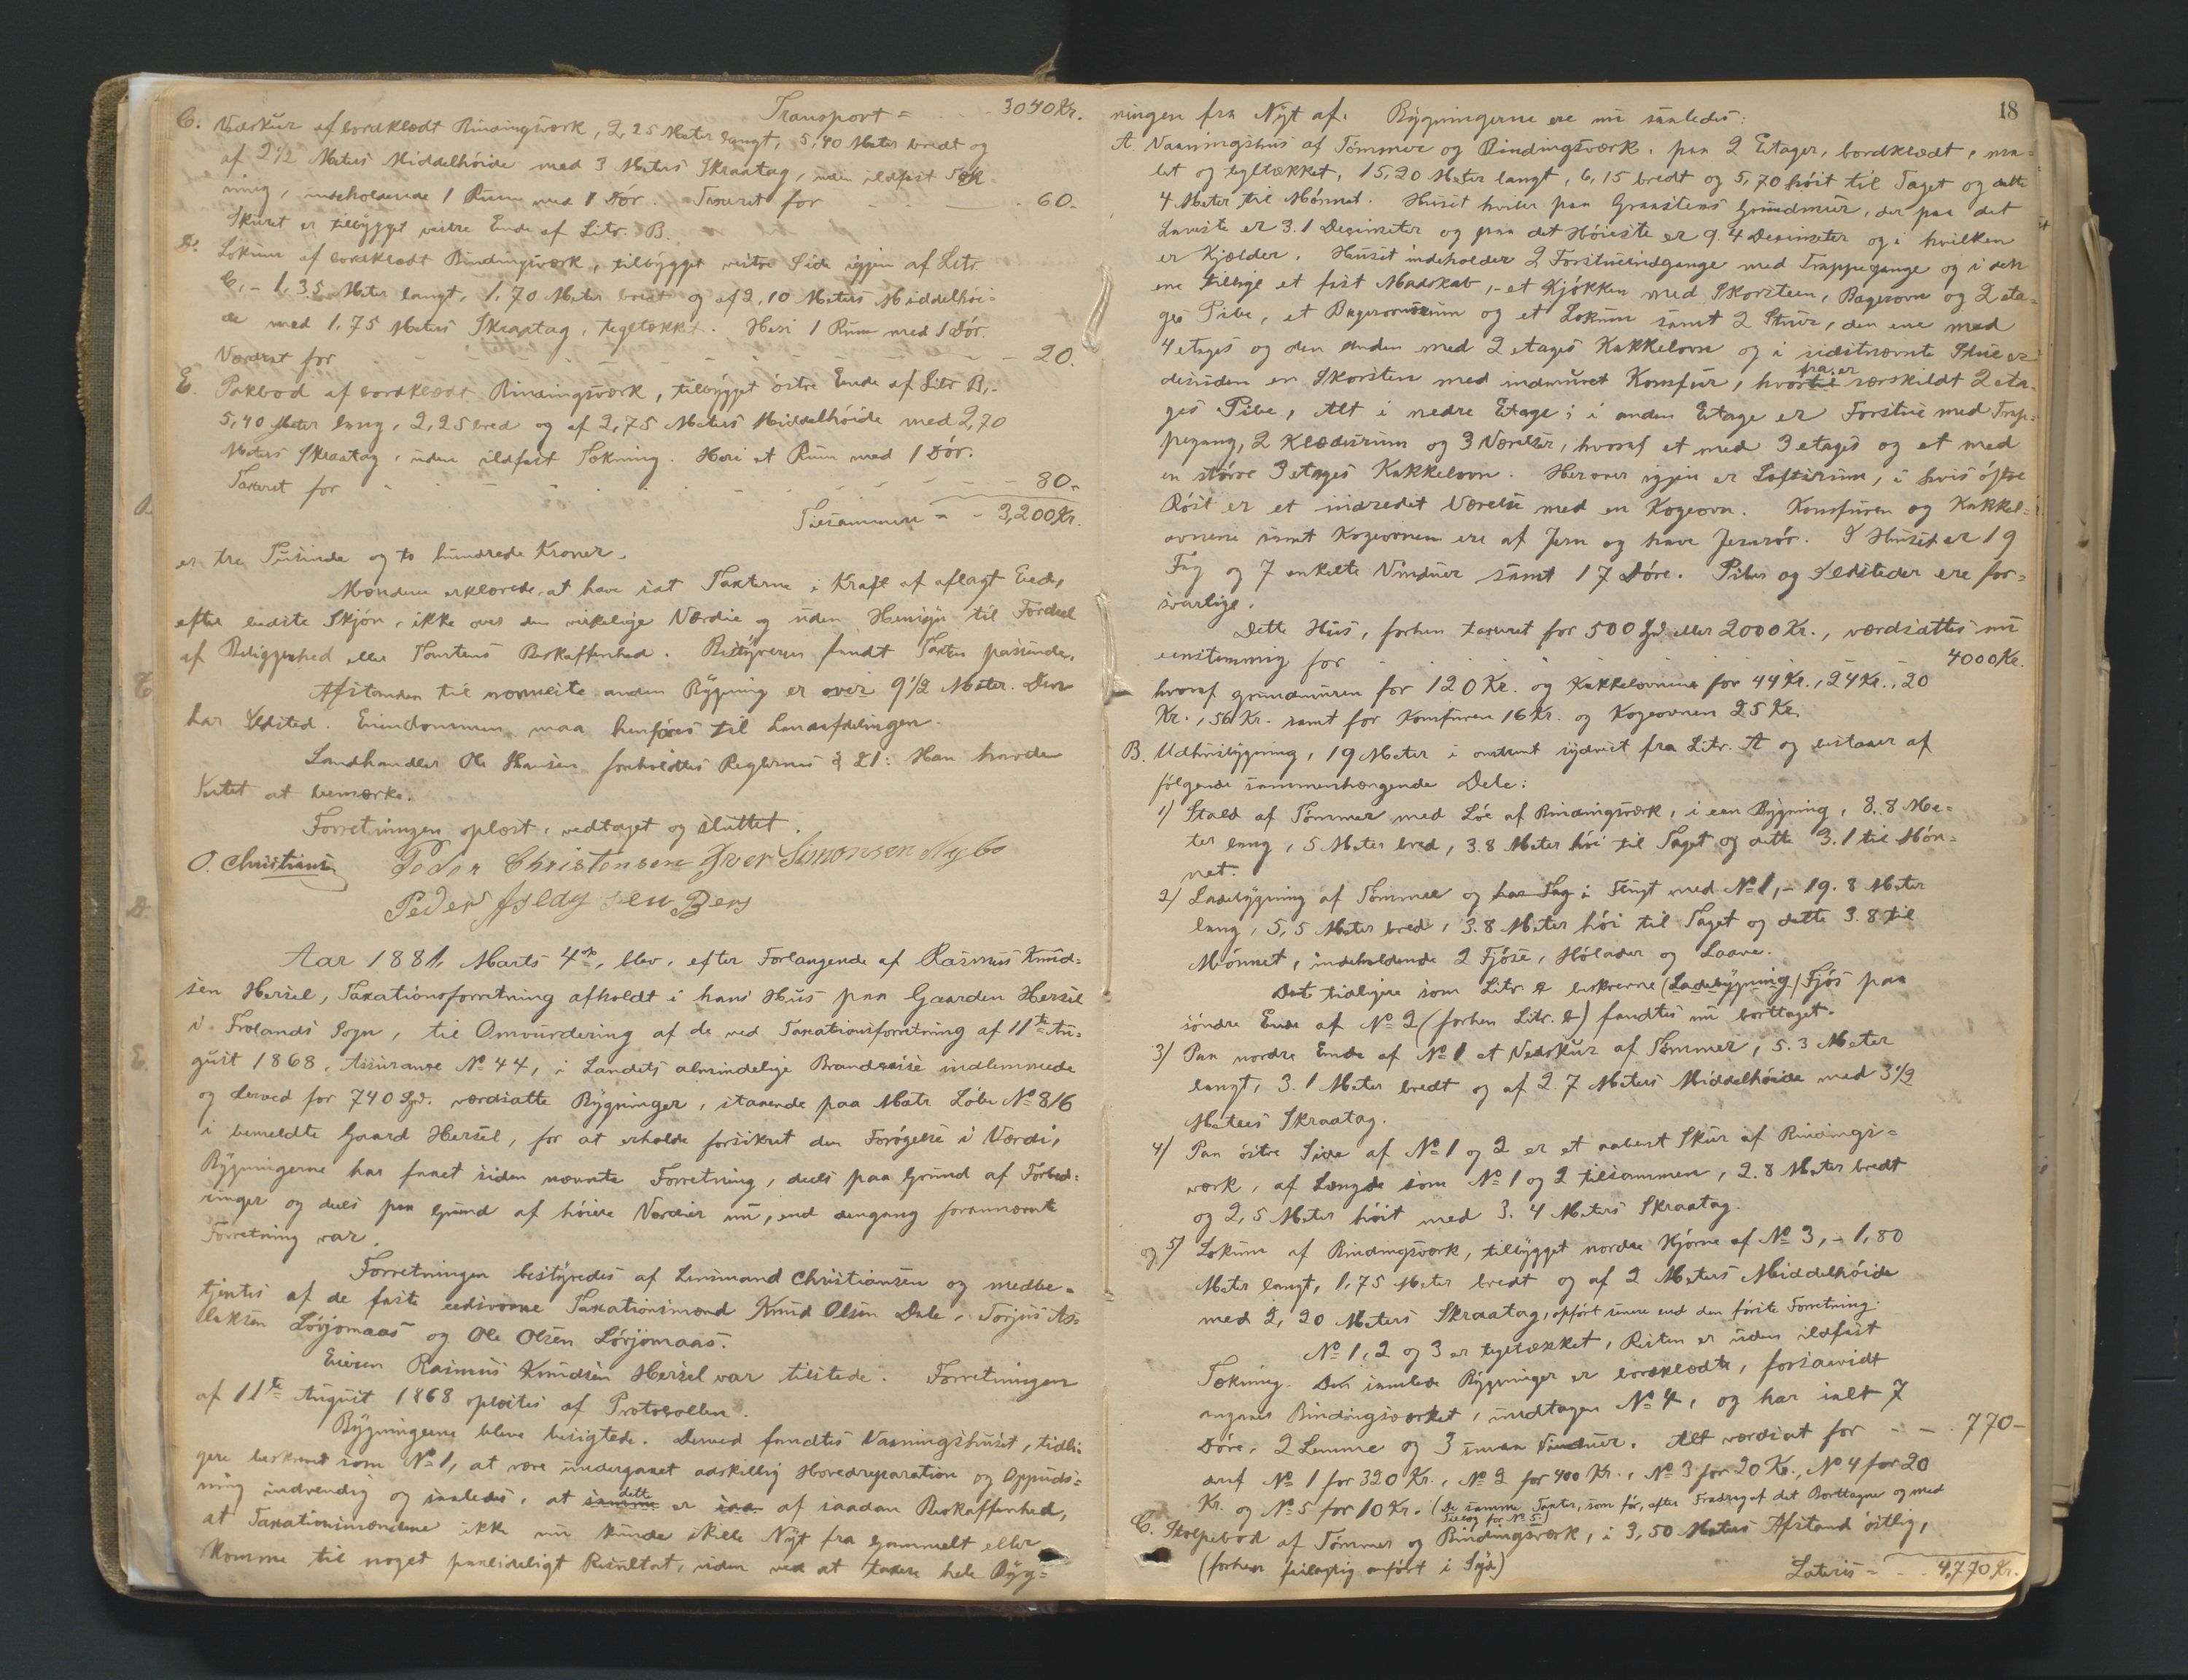 Transport = 3040 Kr.
C. Vedskur af bordklædt Bindingsværk, 2,25 Meter langt, 5,40 Meter bredt og
af 2 1/2 Meters Middelhöide med 3 Meters Skraatag, uden ildfast Tæk
ning, indeholdende 1 Rum med 1 Dör. Taxeret for 60.
Skuret er tilbygget vestre Ende af Litr. B.
D. Lokum af bordklædt Bindingsværk, tilbygget vestre Side igjen af Litr.
C, - 1,35 Meter langt, 1,70 Meter bredt og af 2,10 Meters Middelhöi-
de med 1,75 Meters Skraatag, tegltækket. Heri 1 Rum med 1 Dör.
Værdsat for 20.
E. Pakbod af bordklædt Bindingsværk, tilbygget östre Ende af Litr B, -
5,40 Meter lang, 2,25 bred og af 2,75 Meters Middelhöide med 2,70
Meters Skraatag, uden ildfast Tækning. Heri et Rum med 1 Dör.
Taxeret for 80.
Tilsammen = 3,200 Kr.
er tre Tusinde og to hundrede Kroner.
Mændene erklærede, at have sat Taxterne i Kraft af aflagt Eed,
efter bedste Skjön, ikke over den virkelige Værdie og uden Hensyn til Fordeel
af Beliggenhed eller Tomtens Beskaffenhed. Bestyreren fandt Taxten passende.
Afstanden til nærmeste anden Bygning er over 9 1/2 Meter. Den
har Ildsted. Eiendommen maa henföres til Landafdelingen.
Landhandler Ole Hansen foreholdtes Reglernes § 21: Han havde
Intet at bemærke.
Forretningen oplæst, vedtaget og sluttet.
O. Christiansen Peder Christensen Iver Simonsen Nybo
Peder Berg
Aar 1881, Marts 4de, blev, efter Forlangende af Rasmus Knud-
sen Hersel, Taxationsforretning afholdt i hans Hus paa Gaarden Hersel
i Frolands Sogn, til Omvurdering af de ved Taxationsforretning af 11te Au-
gust 1868, Assurance No 44, i Landets almindelige Brandcasse indlemmede
og derved for 740 Spd. værdsatte Bygninger, staaende paa Matr. Löbe No 8/6
i bemeldte Gaard Hersel, for at erholde forsikret den Forögelse i Værdi,
Bygningerne har faaet siden nævnte Forretning, deels paa Grund af Forbed-
ringer og deels paa Grund af höiere Værdier nu, end dengang forannævnte
Forretning var.
Forretningen bestyredes af Lensmand Christiansen og medbe-
tjentes af de faste eedsvorne Taxationsmænd Knud Olsen Dale, Torjus As-
laksen Lövjomaas og Ole Olsen Lövjomaas.
Eieren Rasmus Knudsen Hersel var tilstede. Forretningen
af 11te August 1868 oplæstes af Protocollen.
Bygningerne bleve besigtede. Derved fandtes Vaaningshuset, tidli
gere beskrevet som No 1, at være undergaaet adskillig Hovedreparation og Oppuds-
ning indvendig og saaledes, at samme dette er saa af saadan Beskaffenhed,
at Taxationsmændene ikke nu kunde skille Nyt fra Gammelt eller
komme til noget paalideligt Resultat, uden ved at taxere hele Byg-
18
ningen fra Nyt af. Bygningerne ere nu saaledes:
A. Vaaningshus af Tömmer og Bindingsværk, paa 2 Etager, bordklædt, ma-
let og tegltækket, 15,20 Meter langt, 6,15 bredt og 5,70 höit til Taget og dette
4 Meter til Mönnet. Huset hviler paa Graastens Grundmur, der paa det
Laveste er 3.1 Decimeter og paa det Höieste er 9.4 Decimeter og i hvilken
er Kjælder. Huset indeholder 2 Forstueindgange med Trappegange og i den
ene tillige et fast Madskab, - et Kjökken med Skorsteen, Bagerovn og 2 eta-
ges Pibe, et Bagerovnsrum og et Lokum samt 2 Stuer, den ene med
4 etages og den anden med 2 etages Kakkelovn og i sidstnævnte Stue er
desuden en Skorsten med indmuret Komfur, hvortil fra er særskildt 2 eta-
ges Pibe, Alt i nedre Etage; i anden Etage er Forstue med Trap-
pegang, 2 Klæderum og 3 Værelser, hvoraf et med 3 etages og et med
en större 3 etages Kakkelovn. Herover igjen er Loftsrum, i hvis östre
Röst er et indredet Værelse med en Kogeovn. Komfuren og Kakkel-
ovnene samt Kogeovnen ere af Jern og have Jernrör. I Huset er 19
Fag og 7 enkelte Vinduer samt 17 Döre. Piber og Ildsteder ere for-
svarlige.
Dette Hus, forhen taxeret for 500 Spd eller 2000 Kr., værdsattes nu
eenstemmig for 4000 Kr.
hvoraf Grundmuren for 120 Kr. og Kakkelovnene for 44 Kr., 24 Kr., 20
Kr., 56 Kr. samt for Komfuren 16 Kr. og Kogeovnen 25 Kr.
B. Udhusbygning, 19 Meter i omtrent sydvest fra Litr. A og bestaaer af
fölgende sammenhængende Dele:
1) Stald af Tömmer med Löe af Bindingsværk, i een Bygning, 8.8 Me-
ter lang, 5 Meter bred, 3.8 Meter höi til Taget og dette 3.1 til Mön-
net.
2) Ladebygning af Tömmer og har Tag i Flugt med No 1, - 19.8 Meter
lang, 5,5 Meter bred, 3.8 Meter höi til Taget og dette 3.8 til
Mönnet, indeholdende 2 Fjöse, Hölader og Laave.
Det tidligere som Litr. beskrevne (Ladebygning) Fjös paa
söndre Ende af No 2 (forhen Litr. b) fandtes nu borttaget.
3) Paa nordre Ende af No 1 et Vedskur af Tömmer, 5.3 Meter
langt, 3.1 Meter bredt og af 2.7 Meters Middelhöide med 3 1/2
Meters Skraatag.
4) Paa östre Side af No 1 og 2 er et aabent Skur af Bindings-
værk, af Længde som No 1 og 2 tilsammen, 2.8 Meter bredt
og 2,5 Meter höit med 3.4 Meters Skraatag.
og 5) Lokum af Bindingsværk, tilbygget nordre Hjörne af No 3, - 1,80
Meter langt, 1,75 Meter bredt og af 2 Meters Middelhöide
med 2,20 Meters Skraatag, opfört senere end den förste Forretning.
No 1, 2 og 3 er tegltækket, Resten er uden ildfast
Tækning. Den samlede Bygninger er bordklædte, forsaavidt
angaaer Bindingsværket, undtagen No 4, og har ialt 7
Döre, 2 Lemme og 3 smaa Vinduer. Alt værdsat for 770 -
deraf No 1 for 320 Kr., No 2 for 400 Kr., No 3 for 20 Kr., No 4 for 20
Kr. og No 5 for 10 Kr. (De samme Taxter, som för, efter Fradrag af det Borttagne og med
Tillæg for No 5.)
C. Stolpebod af Tömmer og Bindingsværk, i 3,50 Meters Afstand östlig,
(forhen feilagtig anfört i Syd)
Lateris = 4,770 Kr.